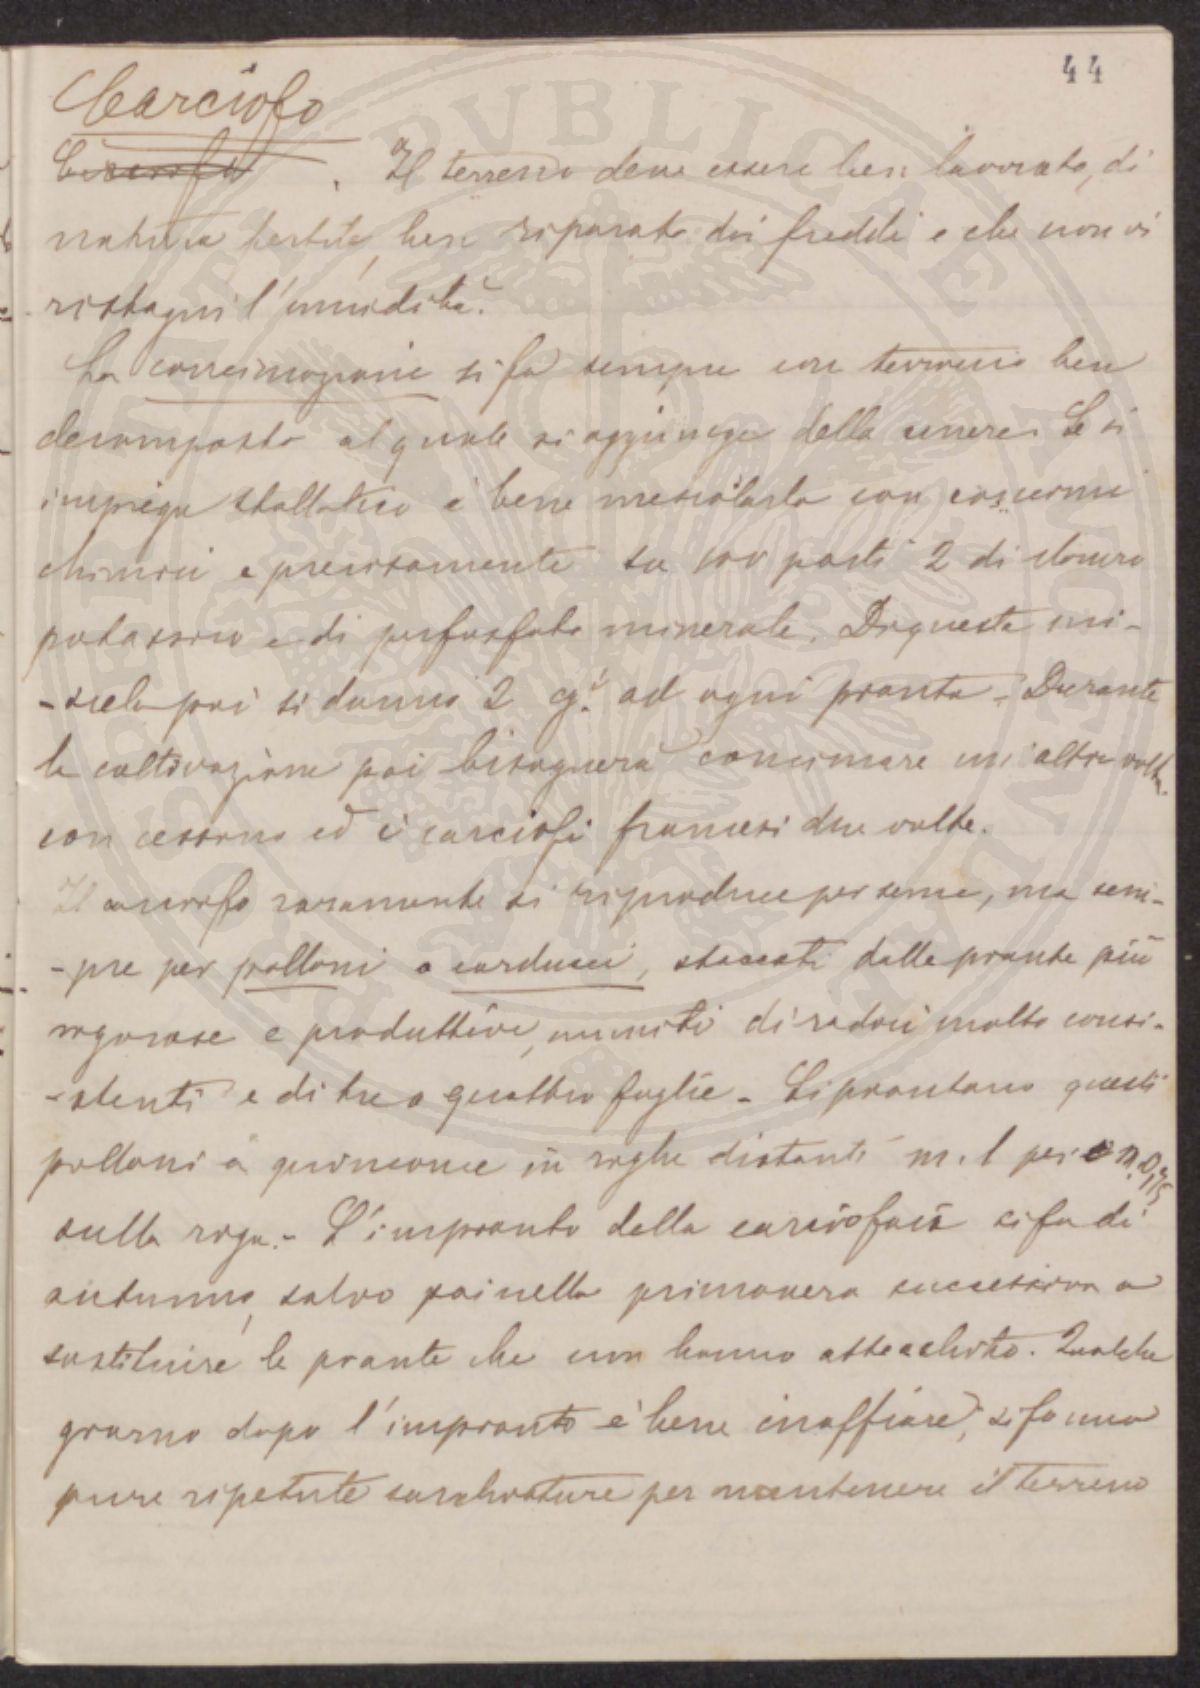 44
Carciofo
Carciofo. Il terreno deve essere ben lavorato, di
natura fertile, ben riparato dai freddi e che non vi
ristagni l'umidità.
La concimazione si fa sempre con terriccio ben
decomposto al quale si aggiunge della cenere. Se si
impiega stallatico è bene mescolarlo con concimi
chimici e precisamente su 100 parti 2 di cloruro
potassico e di perfosfato minerale. Di questa mi-
-scela poi si danno 2 ad ogni pianta. Durante
la coltivazione poi bisognerà concimare un'altra volta
con cessino ed i carciofi francesi due volte.
Il carciofo raramente si riproduce per seme, ma sem-
-pre per polloni o carducci, staccati dalle piante più
vigorose e produttive, muniti di radici molto consi-
-stenti e di tre o quattro foglie - Si piantano questi
polloni a quinconce in righe distanti m. 1 per 0,75
sulla riga. - L'impianto della carciofaia si fa di
autunno, salvo poi nella primavera successiva a
sostituire le piante che non hanno attecchito. Qualche
giorno dopo l'impianto è bene inaffiare, si fanno
pure ripetute sarchiature per mantenere il terreno
PROSPERITATI PUBLICAE AUGENDAE